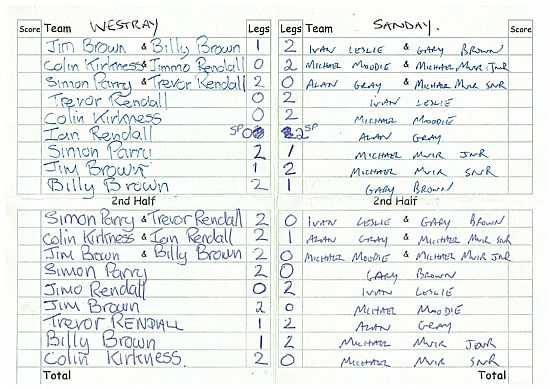 Score Team WESTRAY Legs Legs Team SANDAY. Score
Jim Brown & Billy Brown 1 2 IVAN LESLIE & GARY BROWN
Colin Kirkness & Jimmo Rendall 0 2 MICHAEL MOODIE & MICHAEL MUIR JNR
Simon Parry & Trevor Rendall 2 0 ALAN GRAY & MICHAEL MUIR SNR
Trevor Rendall 0 2 IVAN LESLIE
Colin Kirkness 0 2 MICHAEL MOODIE
Ian Rendall SP 0 2 SP ALAN GRAY
Simon Parry 2 1 MICHAEL MUIR JNR
Jim Brown 1 2 MICHAEL MUIR SNR
Billy Brown 2 1 GARY BROWN
2nd Half 2nd Half
Simon Parry & Trevor Rendall 2 0 IVAN LESLIE & GARY BROWN
Colin Kirkness & Ian Rendall 2 1 ALAN GRAY & MICHAEL MUIR SNR
Jim Brown & Billy Brown 2 0 MICHAEL MOODIE & MICHAEL MUIR JNR
Simon Parry 2 0 GARY BROWN
Jimo Rendall 0 2 IVAN LESLIE
Jim Brown 2 0 MICHAEL MOODIE
Trevor RENDALL 1 2 ALAN GRAY
Billy Brown 1 2 MICHAEL MUIR JNR
Colin Kirkness 2 0 MICHAEL MUIR SNR
Total Total